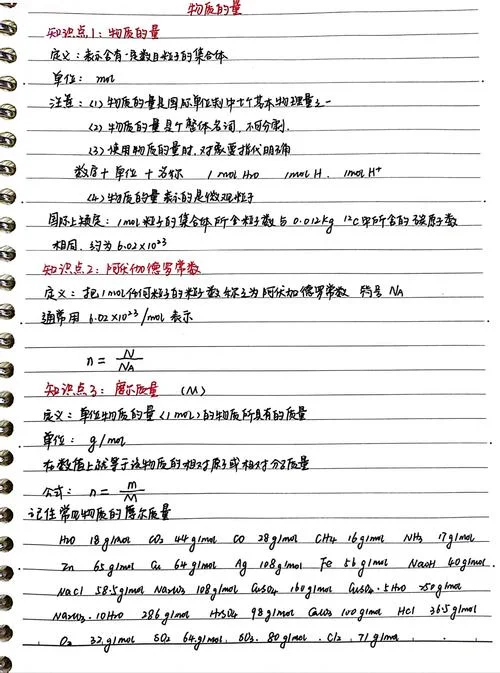 物质的量
知识点1：物质的量
定义：表示含有一定数目粒子的集合体
单位：mol
注意：(1)物质的量是国际单位制中七个基本物理量之一
(2)物质的量是个整体名词，不可分割.
(3)使用物质的量时，对象要指代明确
数字+单位+名称 1mol H2O 1mol H. 1mol H+
(4)物质的量表示的是微观粒子
国际上规定：1mol粒子的集合体所含粒子数与0.012kg 12C中所含的碳原子数
相同，约为6.02×10²³
知识点2：阿伏伽德罗常数
定义：把1mol任何粒子的粒子数称之为阿伏伽德罗常数 符号 NA
通常用 6.02×10²³/mol 表示
n = N/NA
知识点3：摩尔质量 (M)
定义：单位物质的量(1mol)的物质所具有的质量
单位：g/mol
在数值上就等于该物质的相对原子或相对分子质量
公式：n = m/M
记住常见物质的摩尔质量
H2O 18g/mol CO2 44g/mol CO 28g/mol CH4 16g/mol NH3 17g/mol
Zn 65g/mol Cu 64g/mol Ag 108g/mol Fe 56g/mol NaOH 40g/mol
NaCl 58.5g/mol Na2CO3 108g/mol CuSO4 160g/mol CuSO4·5H2O 250g/mol
Na2CO3·10H2O 286g/mol H2SO4 98g/mol CaCO3 100g/mol HCl 36.5g/mol
O2 32g/mol SO2 64g/mol. SO3. 80g/mol. Cl2. 71g/mol